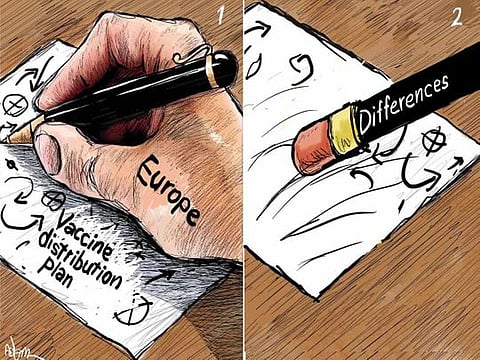 1
Europe
Vaccine
distribution
plan
2
Differences